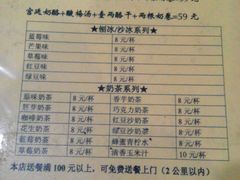 宫廷奶酪+酸梅汤+杏两酪干+两根奶卷=59元
★刨冰/沙冰系列★
蓝莓味 8元/杯
芒果味 8元/杯
草莓味 8元/杯
红豆味 8元/杯
绿豆味 8元/杯
★奶茶系列★
原味奶茶 8元/杯 香芋奶茶 8元/杯
麦芽奶茶 8元/杯 巧克力奶茶 8元/杯
咖啡奶茶 8元/杯 红豆奶茶 8元/杯
花生奶茶 8元/杯 绿豆沙奶茶 8元/杯
蓝莓奶茶 8元/杯 蜂蜜青柠水 8元/杯
草莓奶茶 8元/杯 清香玉米汁 10元/杯
本店送餐满100元以上,可免费送餐上门(2公里以内)